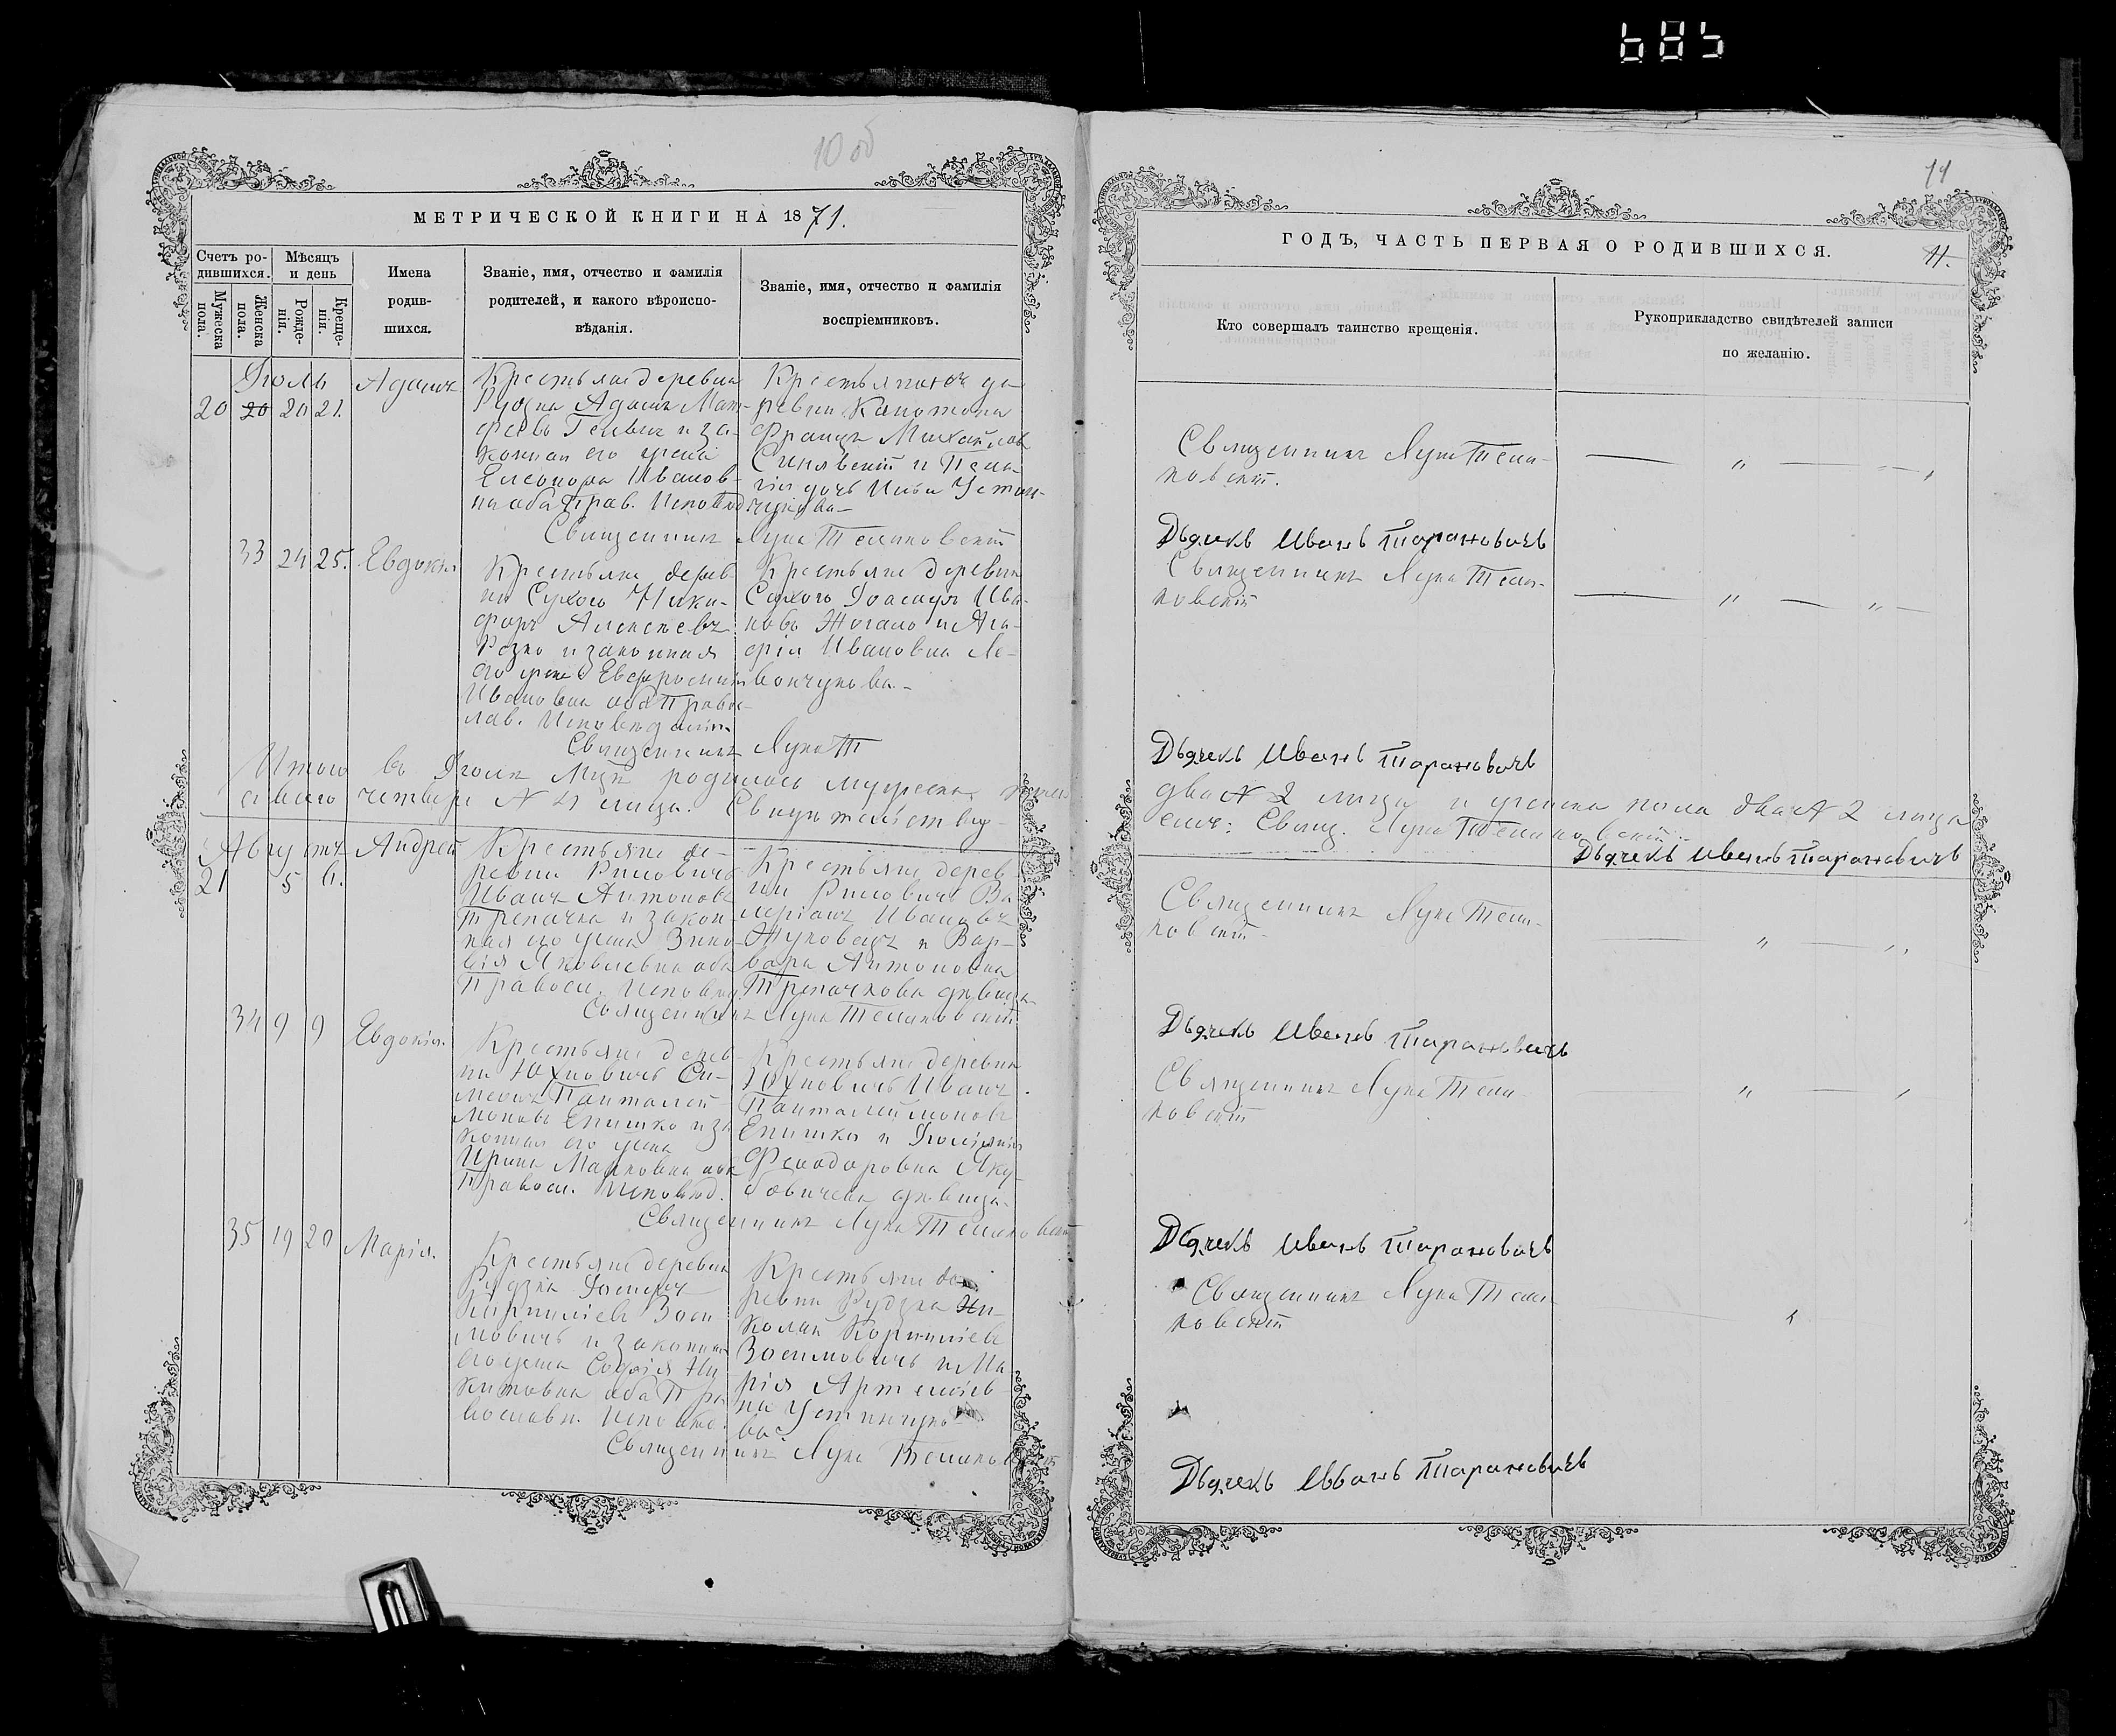 685
10 об
МЕТРИЧЕСКОЙ КНИГИ НА 1871.
Счетъ ро-
дившихся.
Мѣсяцъ
и день
Мужеска
пола.
Женска
пола.
Рожде-
нія.
Креще-
нія.
Имена
родив-
шихся.
Званіе, имя, отчество и фамилія
родителей, и какого вѣроиспо-
вѣданія.
Званіе, имя, отчество и фамилія
воспріемниковъ.
Іюль
20 20 20 21.
Адамъ
Крестьяне деревни
Рудзка Адамъ Мат-
феевъ и за-
конная его жена
Елеонора Иванов-
на оба Прав. Исповѣд
Крестьянинъ де-
ревни
Францъ Михайловъ
Синявскій и Пела-
гія дочь
Священникъ Лука Теляковскій
33 24 25.
Евдокія
Крестьяне дерев-
ни Сухого Ники-
форъ Алексѣевъ
Розко и законная
его жена Евфросинія
Ивановна оба Право-
слав. Исповѣданія
Крестьяне деревни
Сухого Іоасафъ Ива-
новъ Жогало и Ага-
фія Ивановна Ле-
вончукова
Священникъ Лука Т
Итого въ Іюлѣ мцѣ родилось мужеска пола
а всего четыре № 4 лица. Свидѣтельству-
Августъ
21 5 6.
Андрей
Крестьяне де-
ревни Рыловичъ
Иванъ Антоновъ
Трепачка и закон-
ная его жена Зино-
вія Яковлевна оба
Правосл. Исповѣд
Крестьяне дерев-
ни Рыловичъ Ва-
леріанъ Ивановъ
Жуковецъ и Вар-
вара Антоновна
Трепачкова дѣвица
Священникъ Лука Теляковскій
34 9 9
Евдокія.
Крестьяне дерев-
ни Юхновичъ Си-
меонъ Панталей-
моновъ Епишко и за
конная его жена
Ирина Марковна оба
Правосл. Исповѣд.
Крестьяне деревни
Юхновичъ Иванъ
Панталеймоновъ
Епишко и Іуліянія
Феодоровна Яку-
бовичева дѣвица
Священникъ Лука Теляковскій
35 19 20
Марія.
Крестьяне деревни
Рудзка Іосифъ
Корниліевъ Зоси-
мовичъ и законная
его жена Софія Ни-
китовна оба Пра-
вославн. Исповѣд.
Крестьяне де-
ревни Рудзка Ни-
колай Корниліевъ
Зосимовичъ и Ма-
рія Артеміев-
на Устинчуко-
ва
Священникъ Лука Теляковскій
11
ГОДЪ, ЧАСТЬ ПЕРВАЯ О РОДИВШИХСЯ.
11.
Кто совершалъ таинство крещенія.
Рукоприкладство свидѣтелей записи
по желанію.
Священникъ Лука Теля-
ковскій.
Дьячекъ Иванъ Тарановичъ
Священникъ Лука Теля-
ковскій
Дьячекъ Иванъ Тарановичъ
два № 2 лица и женска пола два № 2 лица
емъ: Свящ. Лука Теляковскій
Дьячекъ Иванъ Тарановичъ
Священникъ Лука Теля-
ковскій
Дьячекъ Иванъ Тарановичъ
Священникъ Лука Теля-
ковскій
Дьячекъ Иванъ Тарановичъ
Священникъ Лука Теля-
ковскій
Дьячекъ Иванъ Тарановичъ